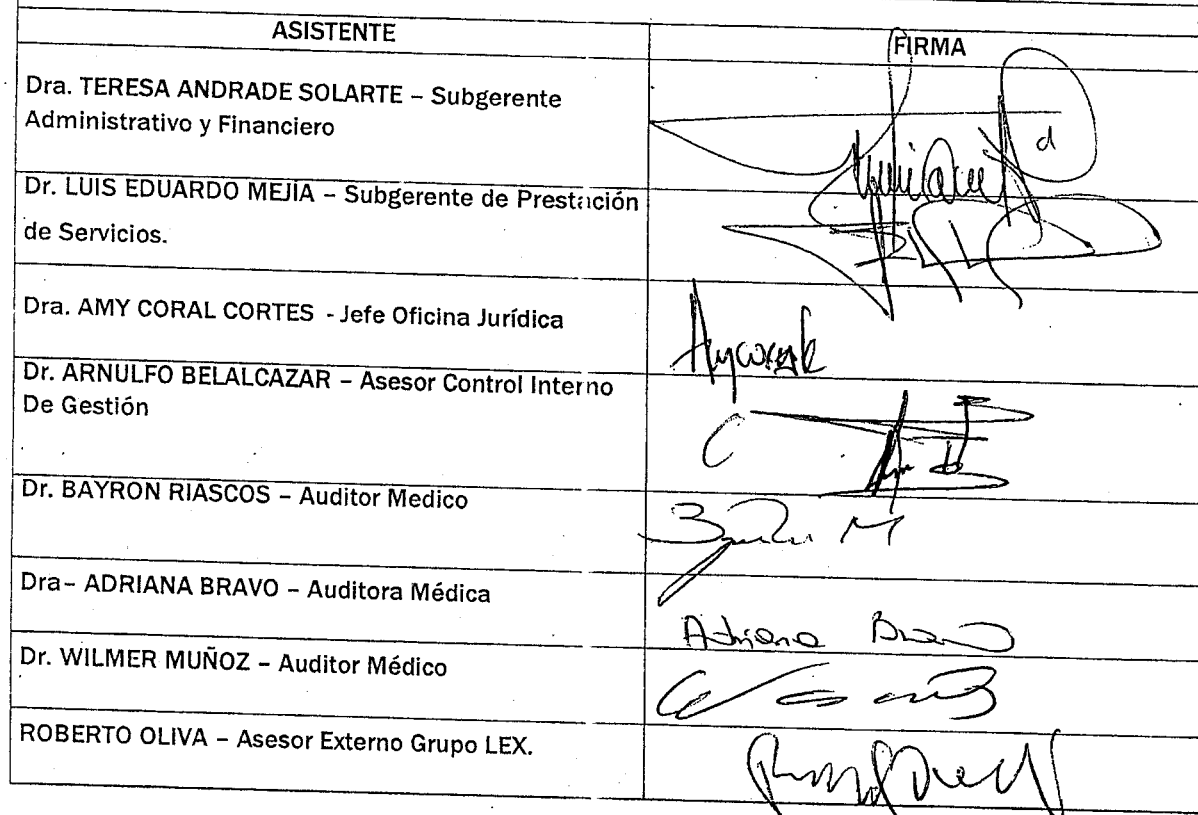 ASISTENTE
FIRMA
Dra. TERESA ANDRADE SOLARTE – Subgerente
Administrativo y Financiero
Dr. LUIS EDUARDO MEJÍA – Subgerente de Prestación
de Servicios.
Dra. AMY CORAL CORTES - Jefe Oficina Jurídica
Dr. ARNULFO BELALCAZAR – Asesor Control Interno
De Gestión
Dr. BAYRON RIASCOS – Auditor Medico
Dra– ADRIANA BRAVO – Auditora Médica
Adriana Bravo
Dr. WILMER MUÑOZ – Auditor Médico
ROBERTO OLIVA – Asesor Externo Grupo LEX.